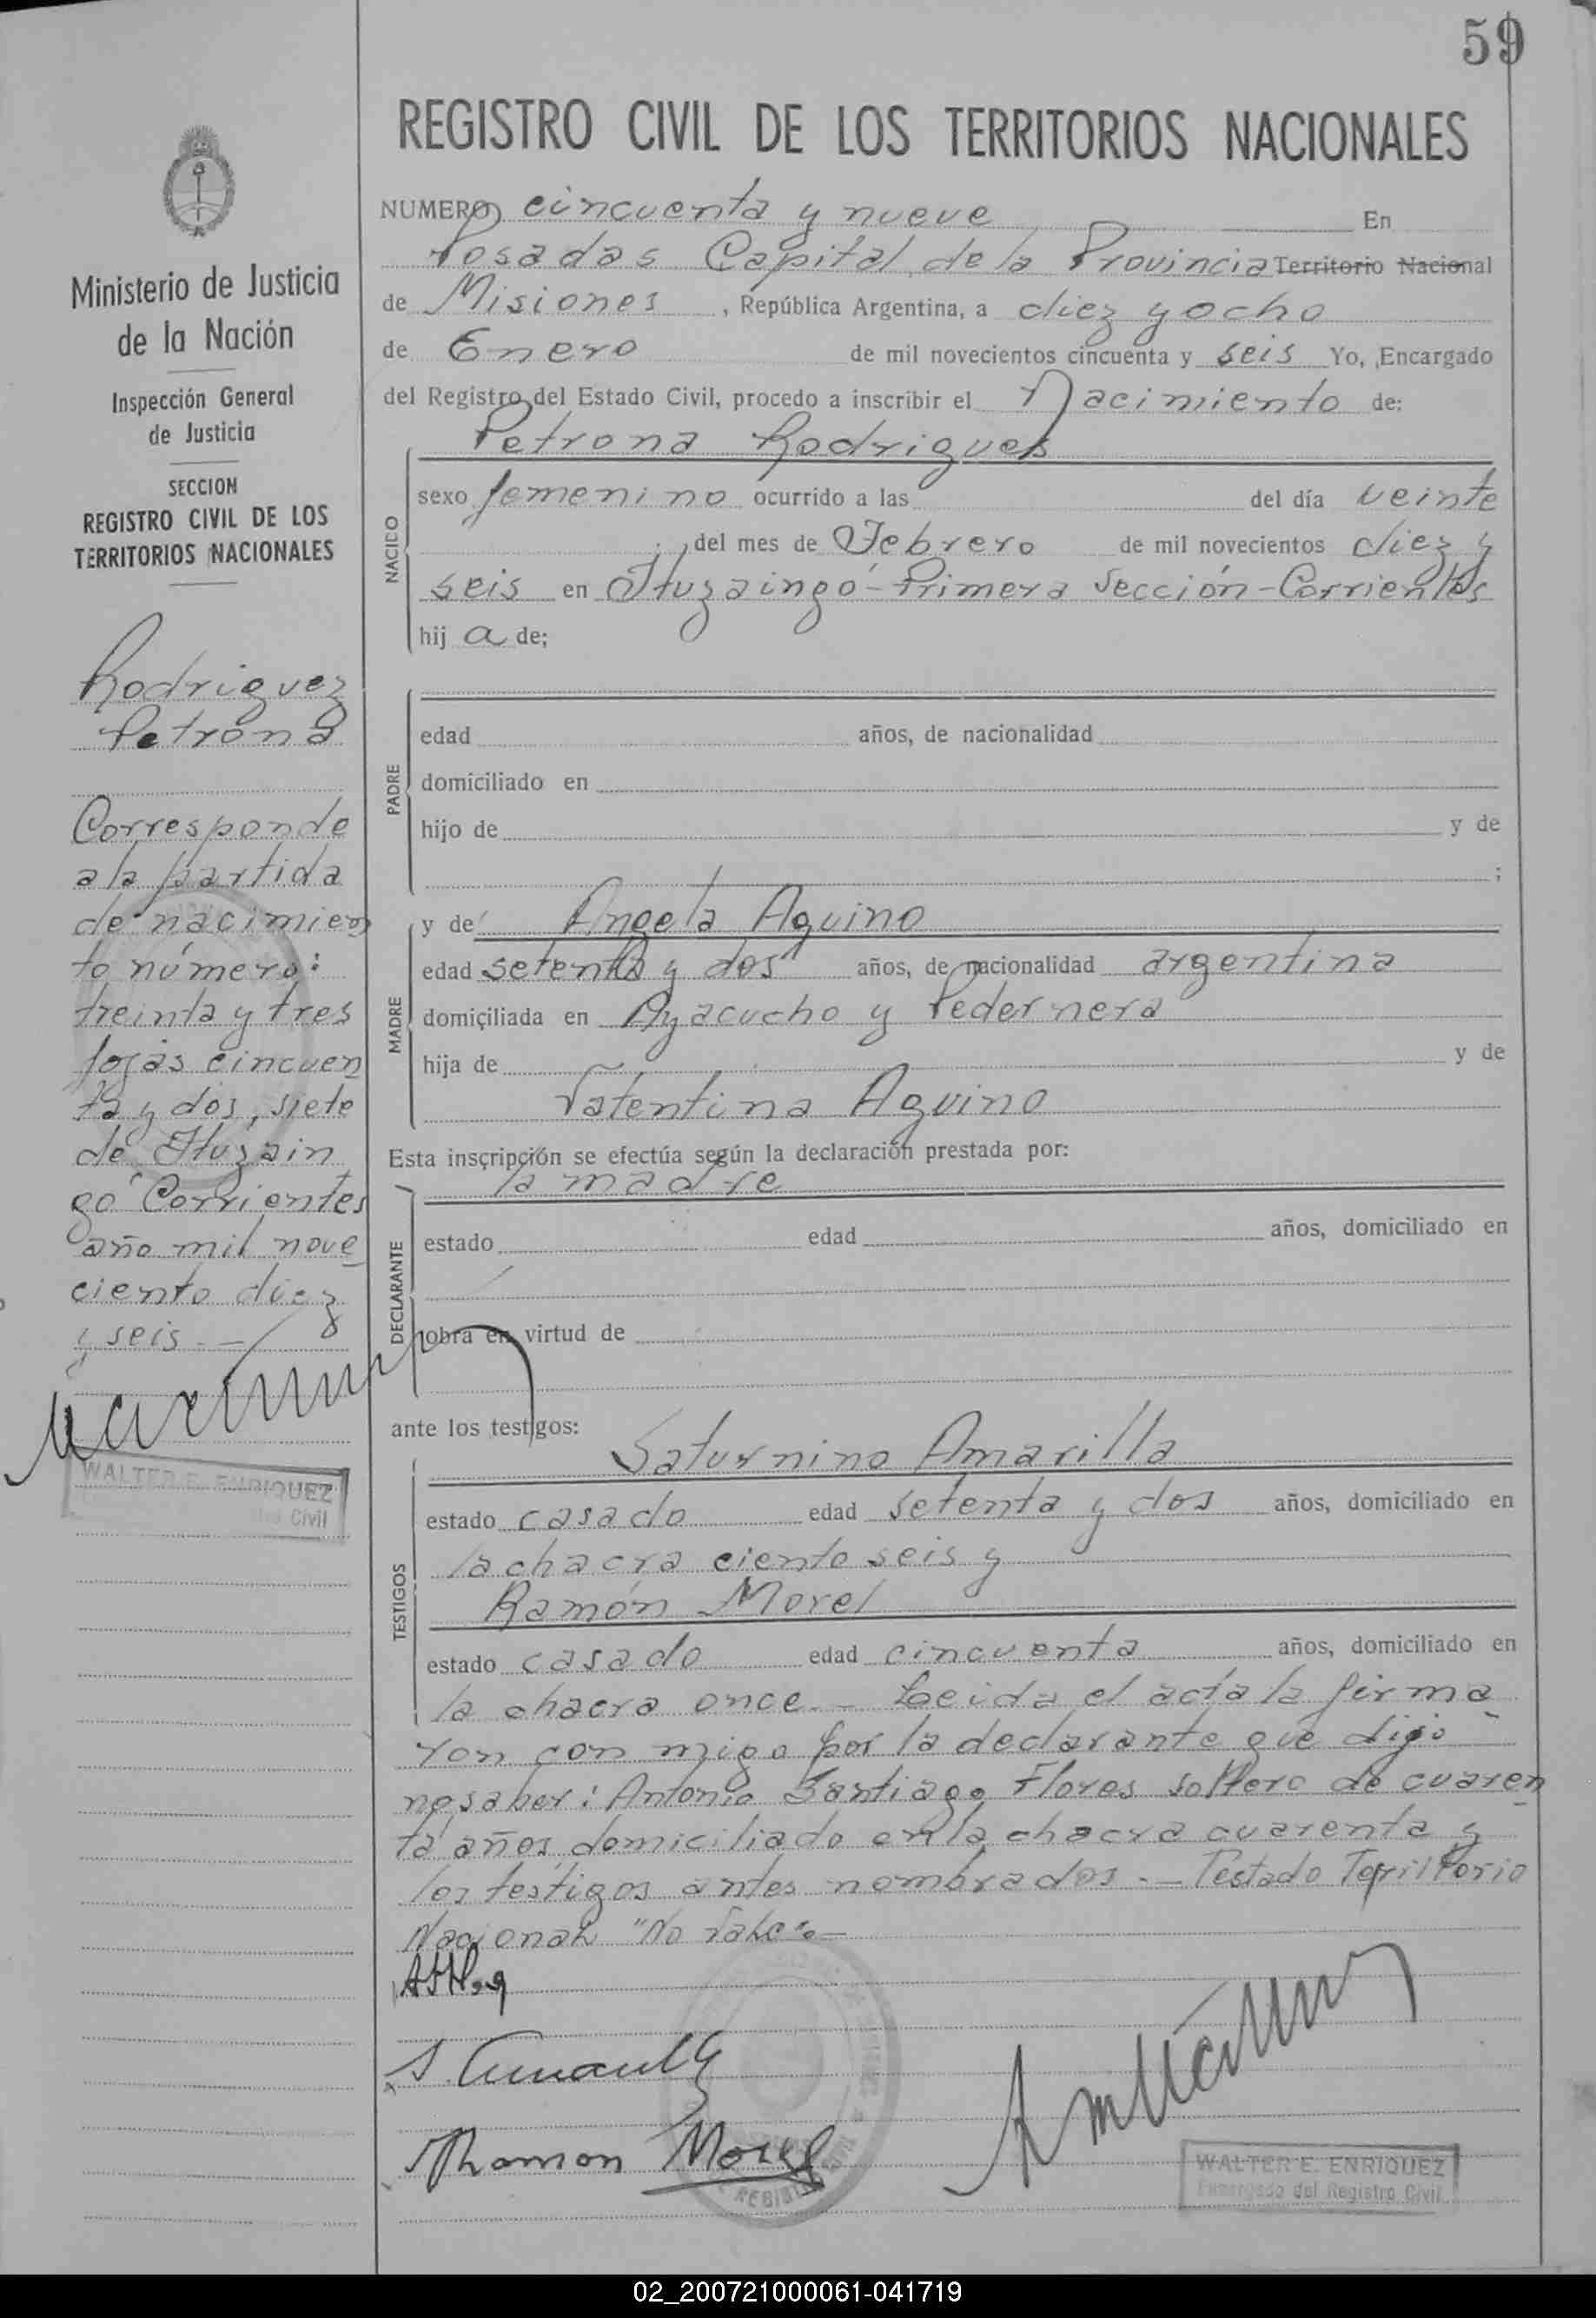 59
REGISTRO CIVIL DE LOS TERRITORIOS NACIONALES
NUMERO cincuenta y nueve En
Posadas Capital de la Provincia Territorio Nacional
de Misiones , República Argentina, a diez y ocho
de Enero de mil novecientos cincuenta y seis Yo, Encargado
del Registro del Estado Civil, procedo a inscribir el Nacimiento de:
Petrona Rodriguez
NACIDO
sexo femenino ocurrido a las del día veinte
del mes de Febrero de mil novecientos diez y
seis en Ituzaingó - Primera Sección - Corrientes
hij a de;
PADRE
edad años, de nacionalidad
domiciliado en
hijo de y de
;
MADRE
y de Angela Aquino
edad setenta y dos años, de nacionalidad argentina
domiciliada en Ayacucho y Pedernera
hija de y de
Valentina Aquino
Esta inscripción se efectúa según la declaración prestada por:
la madre
DECLARANTE
estado edad años, domiciliado en
obra en virtud de
ante los testigos:
Saturnino Amarilla
TESTIGOS
estado casado edad setenta y dos años, domiciliado en
la chacra ciento seis y
Ramón Morel
estado casado edad cincuenta años, domiciliado en
la chacra once - Leida el acta la firma
ron con migo por la declarante que dijo
no saber: Antonio Santiago Flores soltero de cuaren
ta años domiciliado en la chacra cuarenta y
los testigos antes nombrados. - Testado Territorio
Nacional "No Vale" -
Ramon Morel
WALTER E. ENRIQUEZ
Encargado del Registro Civil
Ministerio de Justicia
de la Nación
Inspección General
de Justicia
SECCION
REGISTRO CIVIL DE LOS
TERRITORIOS NACIONALES
Rodriguez
Petrona
Corresponde
a la partida
de nacimien
to número:
treinta y tres
fojas cincuen
ta y dos, siete
de Ituzain
gó Corrientes
año mil nove
ciento diez
y seis. -
WALTER E. ENRIQUEZ
Civil
02_200721000061-041719